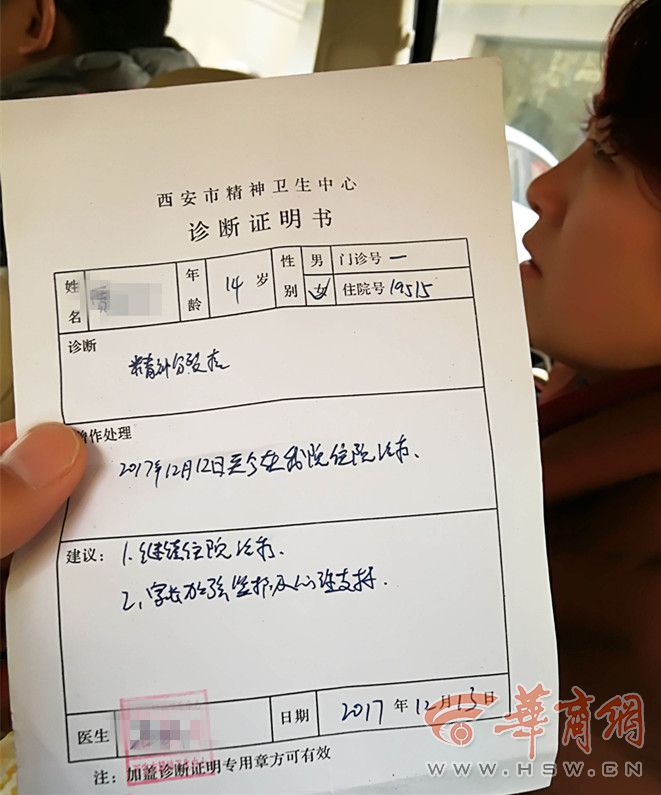 西安市精神卫生中心
诊断证明书
姓名 年龄 14 岁 性别 男 女 门诊号 一
住院号 19515
诊断
精神分裂症
作处理
2017年12月12日至今在我院住院治疗、
建议：1、继续住院治疗、
2、家长加强监护及心理支持.
医生 日期 2017 年 12 月 13 日
注：加盖诊断证明专用章方可有效
華商網
WWW.HSW.CN